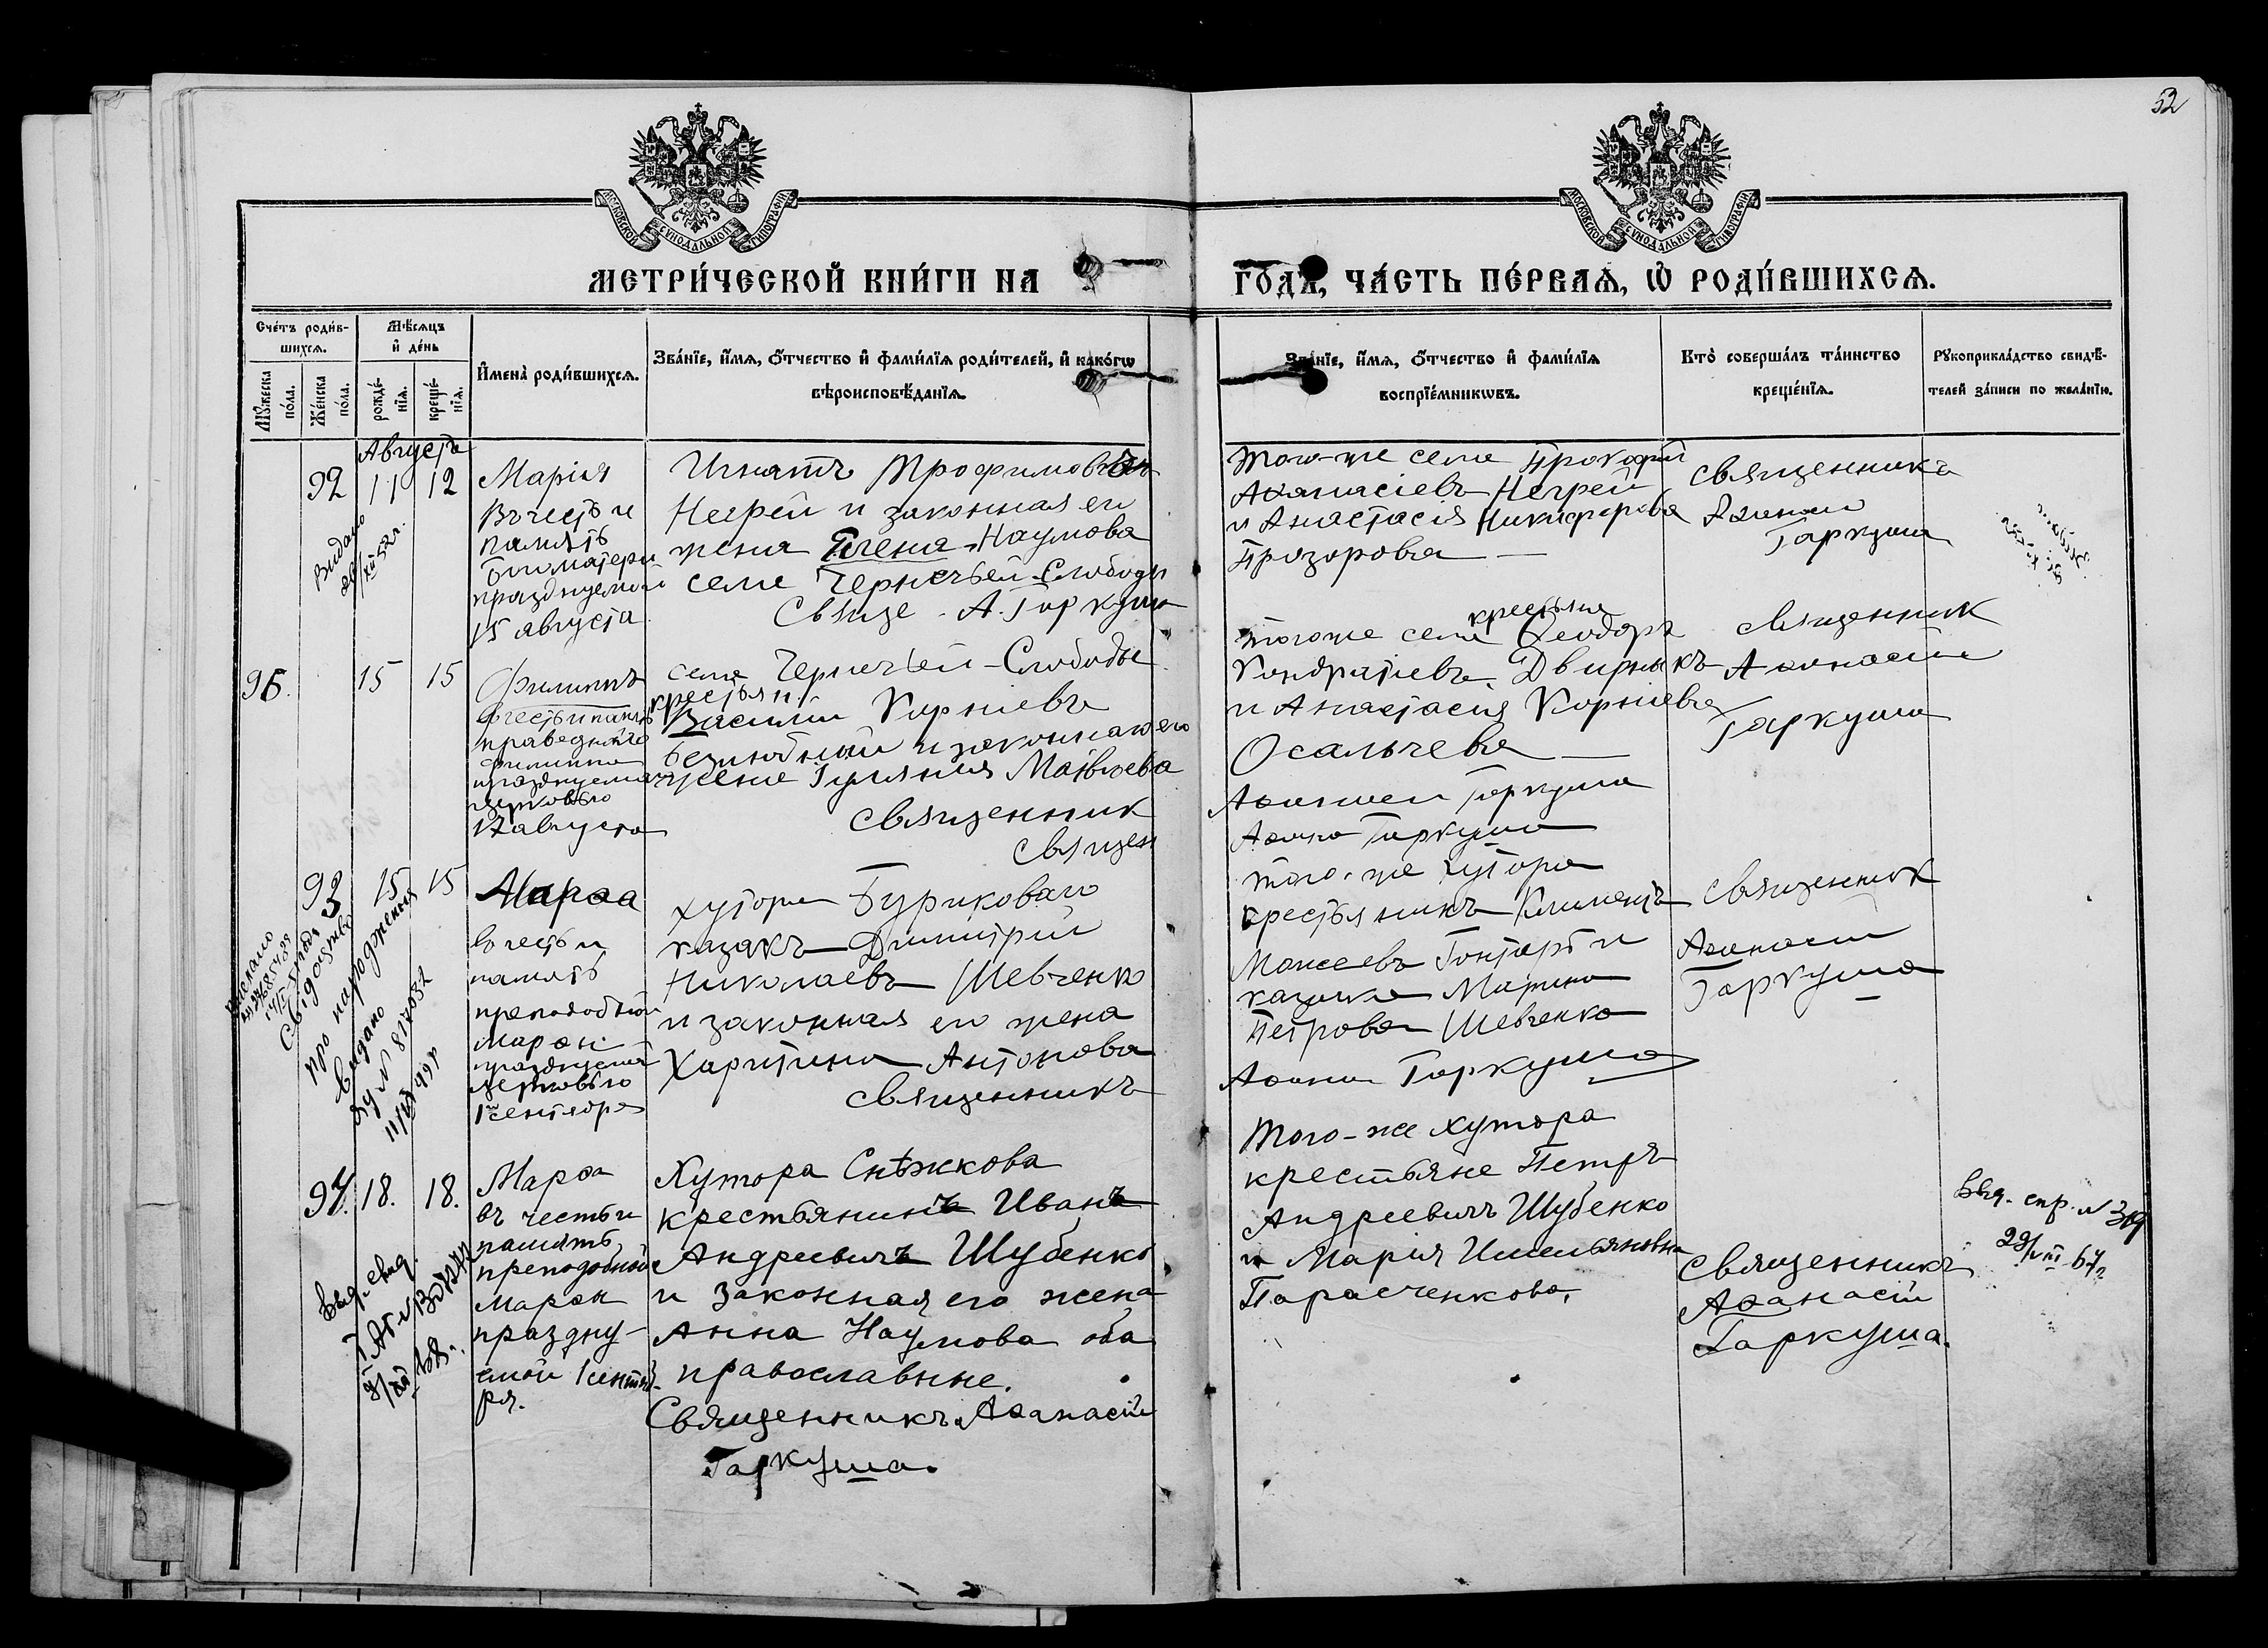 52
МОСКОВСКОЙ СѴНОДАЛЬНОЙ ТИПОГРАФІИ
МОСКОВСКОЙ СѴНОДАЛЬНОЙ ТИПОГРАФІИ
МЕТРИ́ЧЕСКОЙ КНИ́ГИ НА ГО́ДЪ, ЧА́СТЬ ПЕ́РВАѦ, Ѡ РОДИ́ВШИХСѦ.
Сче́тъ роди́в-
шихсѧ.
Мѣ́сѧцъ
и де́нь
Мꙋ́жеска
по́ла.
Же́нска
по́ла.
рожде́-
нїѧ.
креще́-
нїѧ.
И҆мена̀ роди́вшихсѧ.
Зва́нїе, и҆́мѧ, ѻ҆́тчество и҆ фами́лїѧ роди́телей, и҆ како́гѡ
вѣроисповѣ́данїѧ.
Зва́нїе, и҆́мѧ, ѻ҆́тчество и҆ фами́лїѧ
воспрїе́мникѡвъ.
Кто̀ соверша́лъ та́инство
креще́нїѧ.
Рꙋкоприкла́дство свидѣ́-
телей за́писи по жела́нїю.
Августъ
92 11 12
Марія
въ честь и
память
Богоматери
празднуемой
15 августа
Игнатъ Трофимовъ
Негрей и законная его
жена Елена Наумова
села Чернечьей-Слободы
Свяще. А. Гаркуша
Того-же села Прокофій
Аѳанасіевъ Негрей
и Анастасія Никифорова
Прозорова —
Священникъ
Аѳанасій
Гаркуша
Видано
96. 15 15
Филиппъ
въ честь и память
праведнаго
Филиппа
празднуемаго
церковью
августа
села Чернечьей-Слободы
крестьян.
Василій Корніевъ
и законная его
жена Іуліянія Матвѣева
Священник
Священ
крестьяне
того же села Ѳеодоръ
Кондратіевъ Двирникъ
и Анастасія Корніева
Осальчева
Аѳанасій Гаркуша
Аѳана Гаркуша
Священник
Аѳанасій
Гаркуша
93 15 15
Марѳа
въ честь и
память
преподобной
Марѳы
празднуемой
церковью
1го сентября
хутора Бурикового
казакъ Димитрій
Николаевъ Шевченко
и законная его жена
Харитина Антонова
Священникъ
того-же хутора
крестьянинъ Климентъ
Моисеевъ Гонтарь и
казачка Марина
Петрова Шевченко
Аѳана Гаркуша
Священник
Аѳанасій
Гаркуша
Свідоцтво
про народження
видано
94. 18. 18.
Марѳа
въ честь и
память
преподобной
Марѳы
праздну-
емой 1 сентяб-
ря.
Хутора Снѣжкова
крестьянинъ Иванъ
Андреевичъ Шубенко
и законная его жена
Анна Наумова оба
православные.
Священникъ Аѳанасій
Гаркуша.
Того-же хутора
крестьяне Петръ
Андреевичъ Шубенко
и Марія Имельяновна
Парасченкова.
Священникъ
Аѳанасій
Гаркуша.
Выд. свид.
Выд. спр. № 319
29/VIII 67г